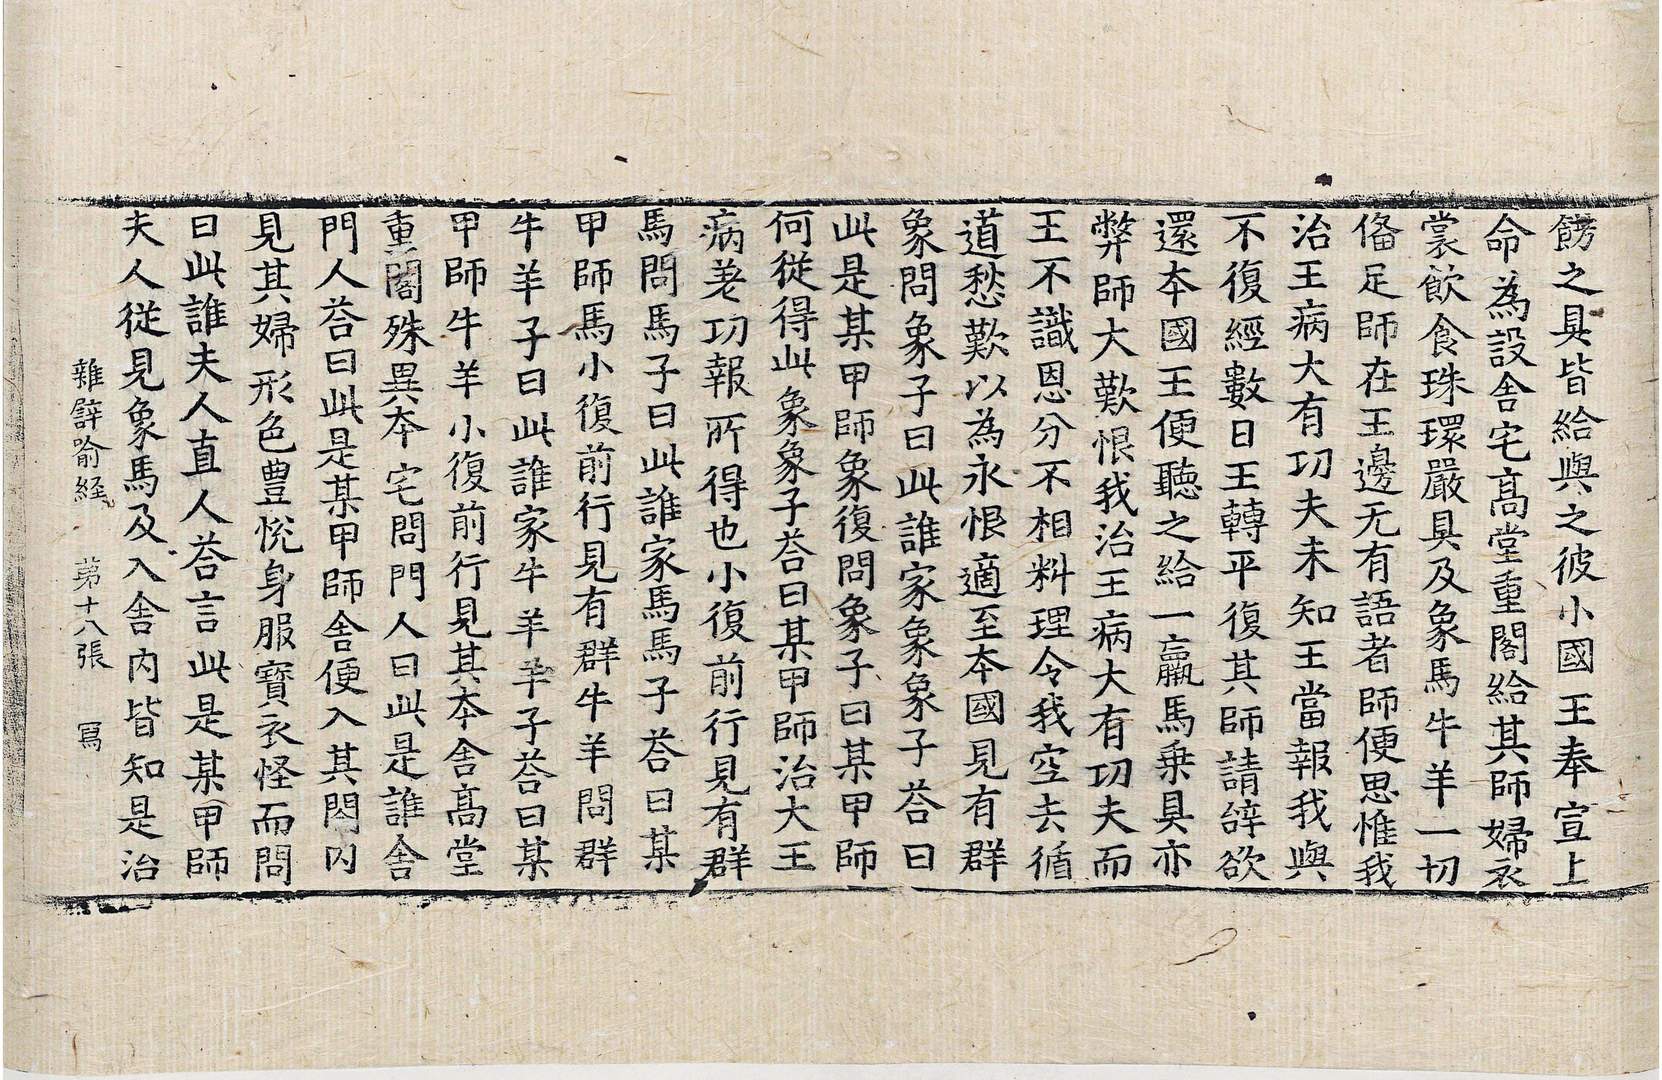 餝之具皆給與之彼小國王奉宣上
命為設舍宅高堂重閣給其師婦衣
裳飲食珠環嚴具及象馬牛羊一切
俻足師在王邊无有語者師便思惟我
治王病大有功夫未知王當報我與
不復經數日王轉平復其師請辝欲
還本國王便聽之給一羸馬乗具亦
弊師大歎恨我治王病大有功夫而
王不識恩分不相料理令我空去循
道愁歎以為永恨適至本國見有群
象問象子曰此誰家象象子荅曰
此是某甲師象復問象子曰某甲師
何從得此象象子荅曰某甲師治大王
病差功報所得也小復前行見有群
馬問馬子曰此誰家馬馬子荅曰某
甲師馬小復前行見有群牛羊問群
牛羊子曰此誰家牛羊羊子荅曰某
甲師牛羊小復前行見其本舍高堂
重閣殊異本宅問門人曰此是誰舍
門人荅曰此是某甲師舍便入其閤内
見其婦形色豊悅身服寶衣怪而問
曰此誰夫人直人荅言此是某甲師
夫人從見象馬及入舍内皆知是治
雜譬喻経 第十八張 寫